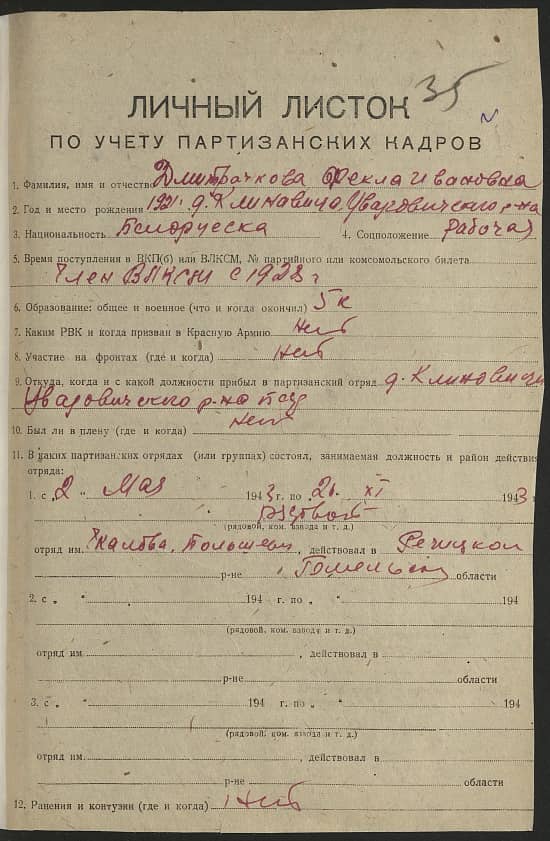 35
ЛИЧНЫЙ ЛИСТОК
ПО УЧЕТУ ПАРТИЗАНСКИХ КАДРОВ
1. Фамилия, имя и отчество Дмитрачкова Фекла Ивановна
2. Год и место рождения 1921 г. д. Клиновичи, Уваровичского р-на
3. Национальность Белоруска 4. Соцположение рабочая
5. Время поступления в ВКП(б) или ВЛКСМ, № партийного или комсомольского билета
Член ВЛКСМ с 1928 г
6. Образование: общее и военное (что и когда окончил) 5 к
7. Каким РВК и когда призван в Красную Армию Нет
8. Участие на фронтах (где и когда) Нет
9. Откуда, когда и с какой должности прибыл в партизанский отряд д. Клиновичи
Уваровичского р-на
10. Был ли в плену (где и когда) Нет
11. В каких партизанских отрядах (или группах) состоял, занимаемая должность и район действия
отряда:
1. с „ 2 “ Мая 1943 г. по „ 26. XI 1943 г
рядовой
(рядовой, ком. взвода и т. д.)
отряд им. Чкалова, Большевик, действовал в Речицком
р-не Гомельской области
2. с „ “ 194 г. по „ “ 194
(рядовой, ком. взвода и т. д.)
отряд им , действовал в
р-не области
3. с „ “ 194 г. по „ “ 194
(рядовой, ком. взвода и т. д.)
отряд им. , действовал в
р-не области
12. Ранения и контузии (где и когда) Нет